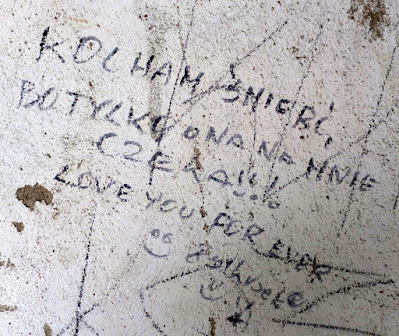 KOCHAM ŚMIERĆ,
BO TYLKO ONA NA MNIE
CZEKA!!!
LOVE YOU FOR EVER